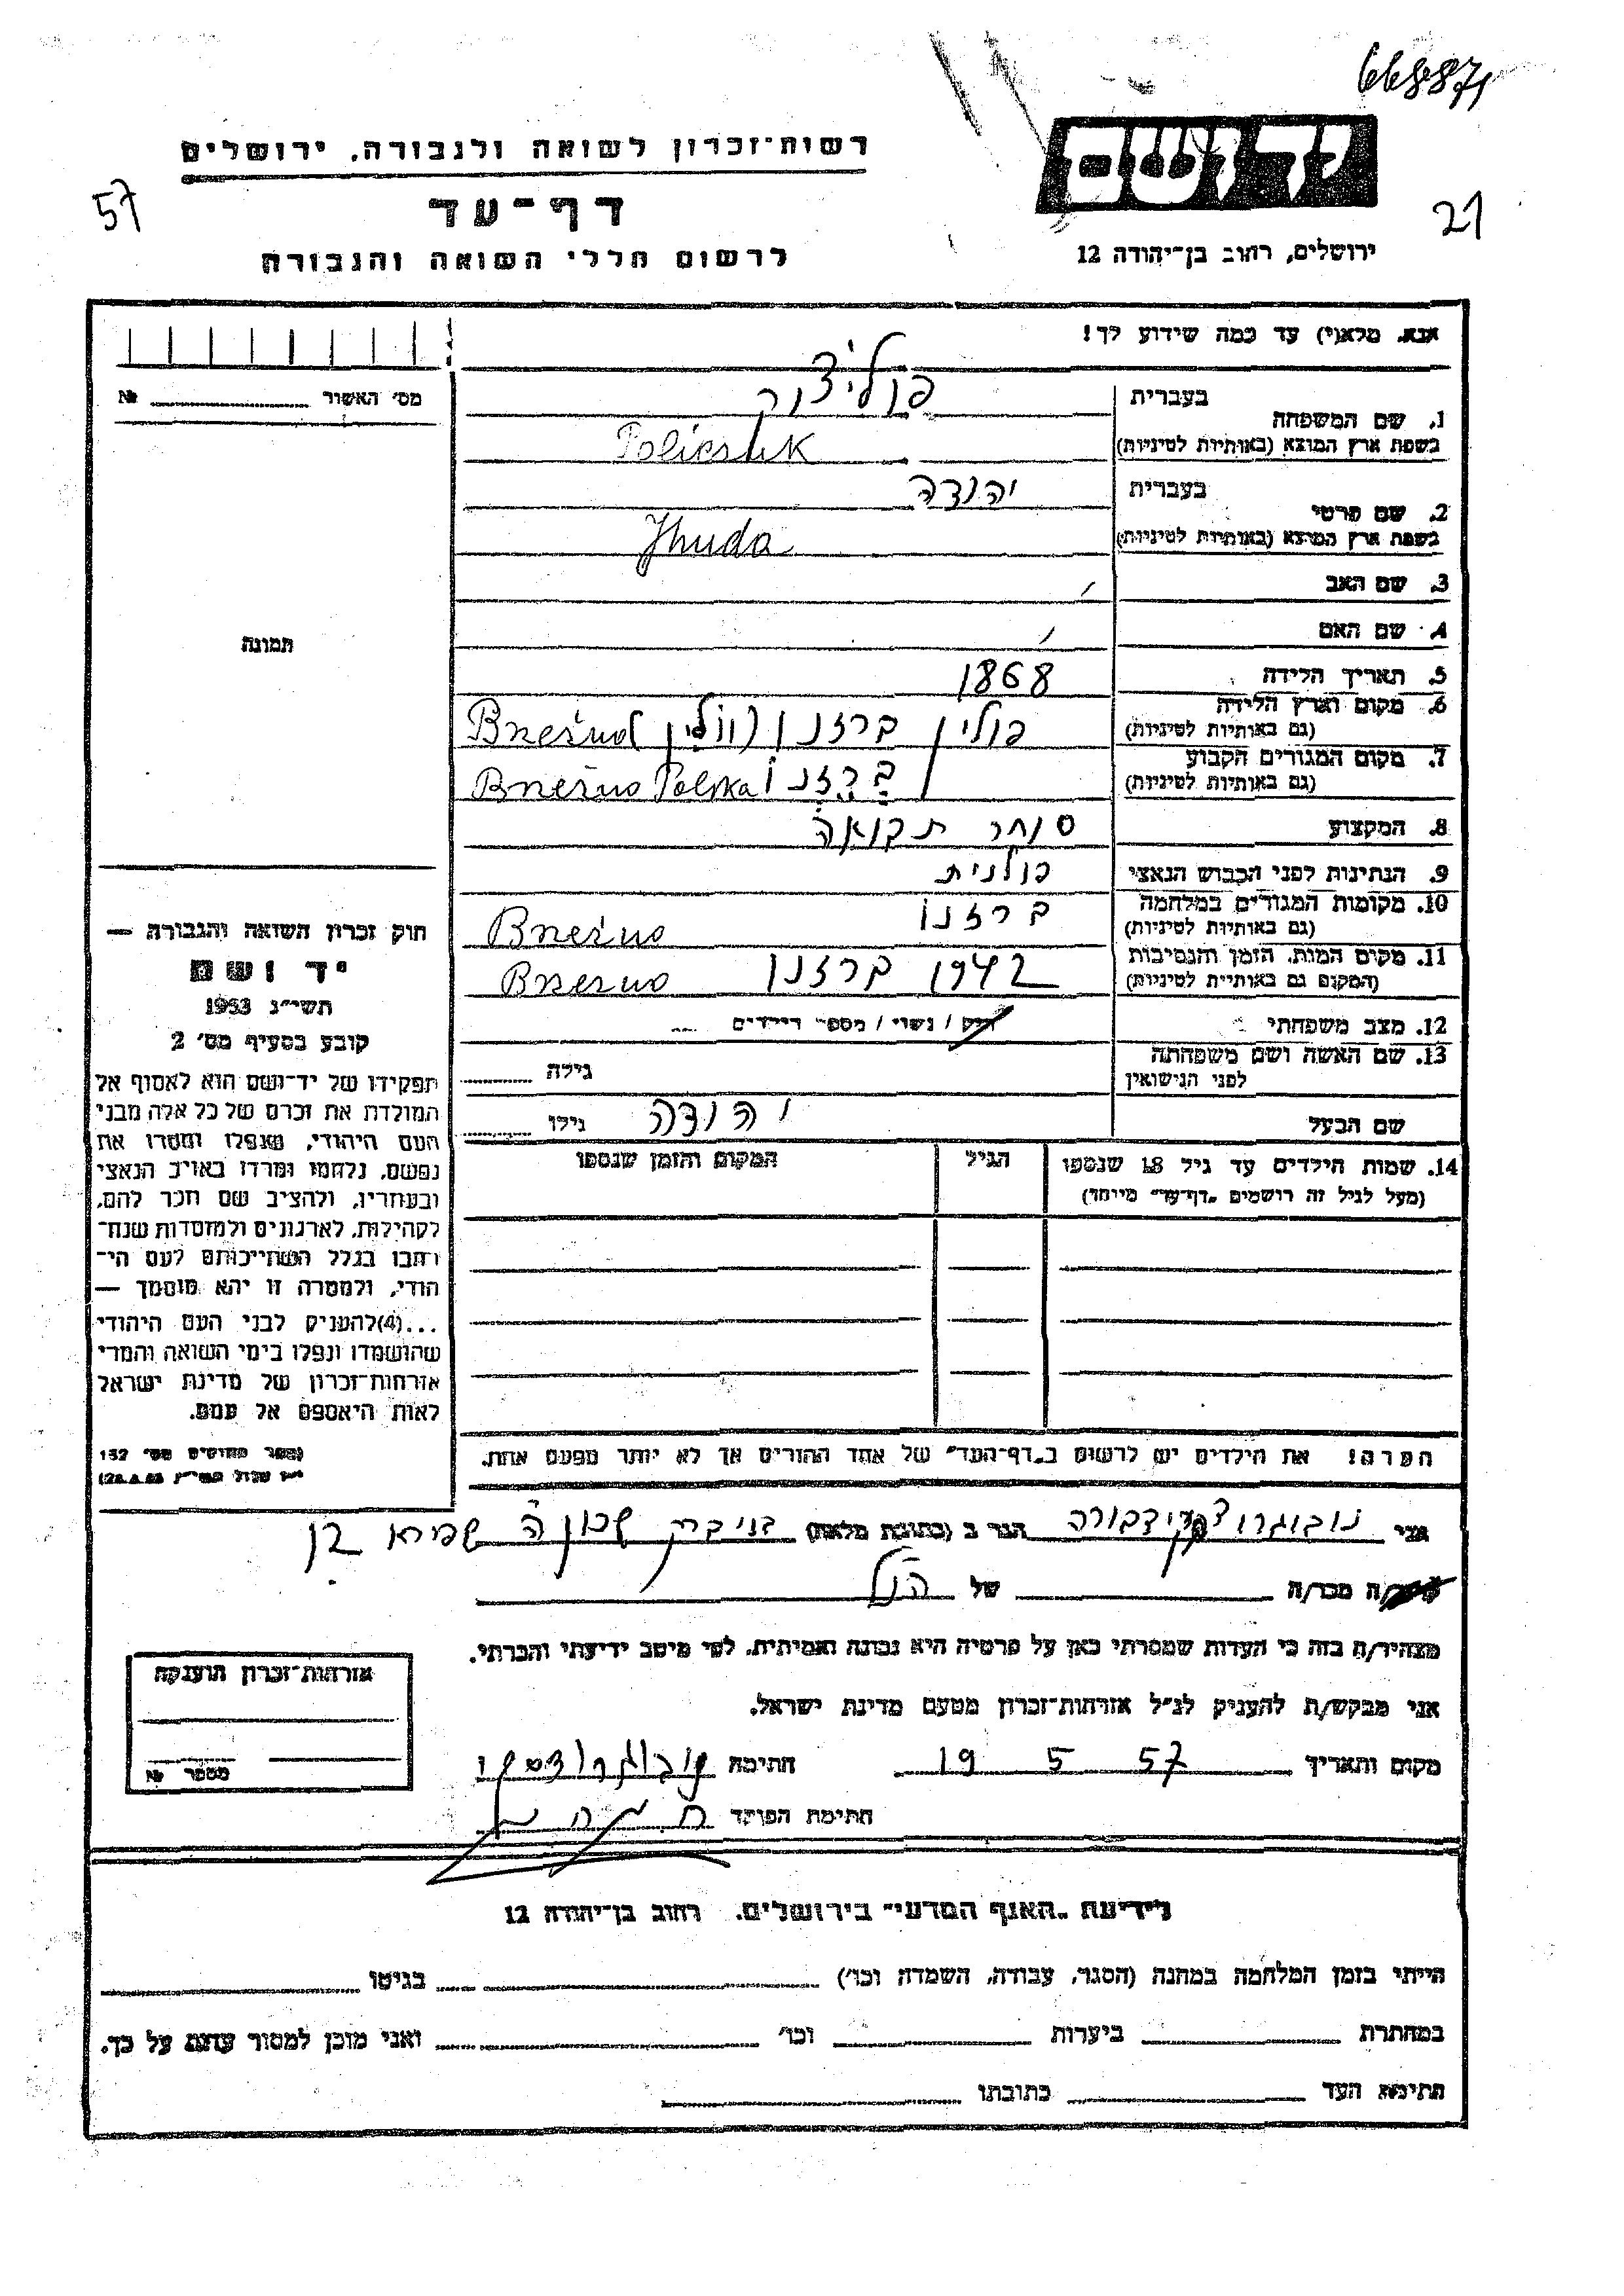 668871
רשות־זכרון לשואה ולגבורה, ירושלים
יד ושם
57
דף־עד
21
לרשום חללי השואה והגבורה
ירושלים, רחוב בן־יהודה 12
אנא, מלא(י) עד כמה שידוע לך!
מס׳ האשור № 
1. שם המשפחה
בעברית פוליצ׳וק
בשפת ארץ המוצא (באותיות לטיניות) Policzuk
2. שם פרטי
בעברית יהודה
בשפת ארץ המוצא (באותיות לטיניות) Jhuda
3. שם האב
4. שם האם
תמונה
5. תאריך הלידה 1868
6. מקום וארץ הלידה פולין ברזנו (ווהלין) Brzeźno
(גם באותיות לטיניות)
7. מקום המגורים הקבוע ברזנו Brzeźno Polska
(גם באותיות לטיניות)
8. המקצוע סוחר תבואה
9. הנתינות לפני הכבוש הנאצי פולנית
10. מקומות המגורים במלחמה ברזנו Brzeźno
(גם באותיות לטיניות)
11. מקום המות, הזמן והנסיבות 1942 ברזנו Brzeźno
(המקום גם באותיות לטיניות)
12. מצב משפחתי רווק / נשוי / מספר הילדים
13. שם האשה ושם משפחתה גילה
לפני הנישואין
שם הבעל יהודה גילו
14. שמות הילדים עד גיל 18 שנספו הגיל המקום והזמן שנספו
(מעל לגיל זה רושמים ״דף־עד״ מיוחד)
הערה! את הילדים יש לרשום ב״דף־העד״ של אחד ההורים אך לא יותר מפעם אחת.
חוק זכרון השואה והגבורה —
יד ושם
תשי״ג 1953
קובע בסעיף מס׳ 2
תפקידו של יד־ושם הוא לאסוף אל
המולדת את זכרם של כל אלה מבני
העם היהודי, שנפלו ומסרו את
נפשם, נלחמו ומרדו באויב הנאצי
ובעוזריו, ולהציב שם וזכר להם,
לקהילות, לארגונים ולמוסדות שנח־
רבו בגלל השתייכותם לעם הי־
הודי, ולמטרה זו יהא מוסמך —
...(4) להעניק לבני העם היהודי
שהושמדו ונפלו בימי השואה והמרי
אזרחות־זכרון של מדינת ישראל
לאות היאספם אל עמם.
(ספר החוקים מס׳ 132
אני נובוגרודצקי דבורה הגר ב (כתובת מלאה) בני ברק שכון ה שפירא
קרוב/ה מכר/ה של הנ״ל
מצהיר/ה בזה כי העדות שמסרתי כאן על פרטיה היא נכונה ואמיתית, לפי מיטב ידיעתי והכרתי.
אני מבקש/ת להעניק לנ״ל אזרחות־זכרון מטעם מדינת ישראל.
מקום ותאריך 19 5 57 חתימה נובוגרודסקי
חתימת הפוקד
אזרחות־זכרון הוענקה
מספר №
לידיעת ״האגף המדעי״ בירושלים, רחוב בן־יהודה 12
הייתי בזמן המלחמה במחנה (הסגר, עבודה, השמדה וכו׳) בגיטו
במחתרת ביערות וכו׳ ואני מוכן למסור עדות על כך.
חתימת העד כתובתו